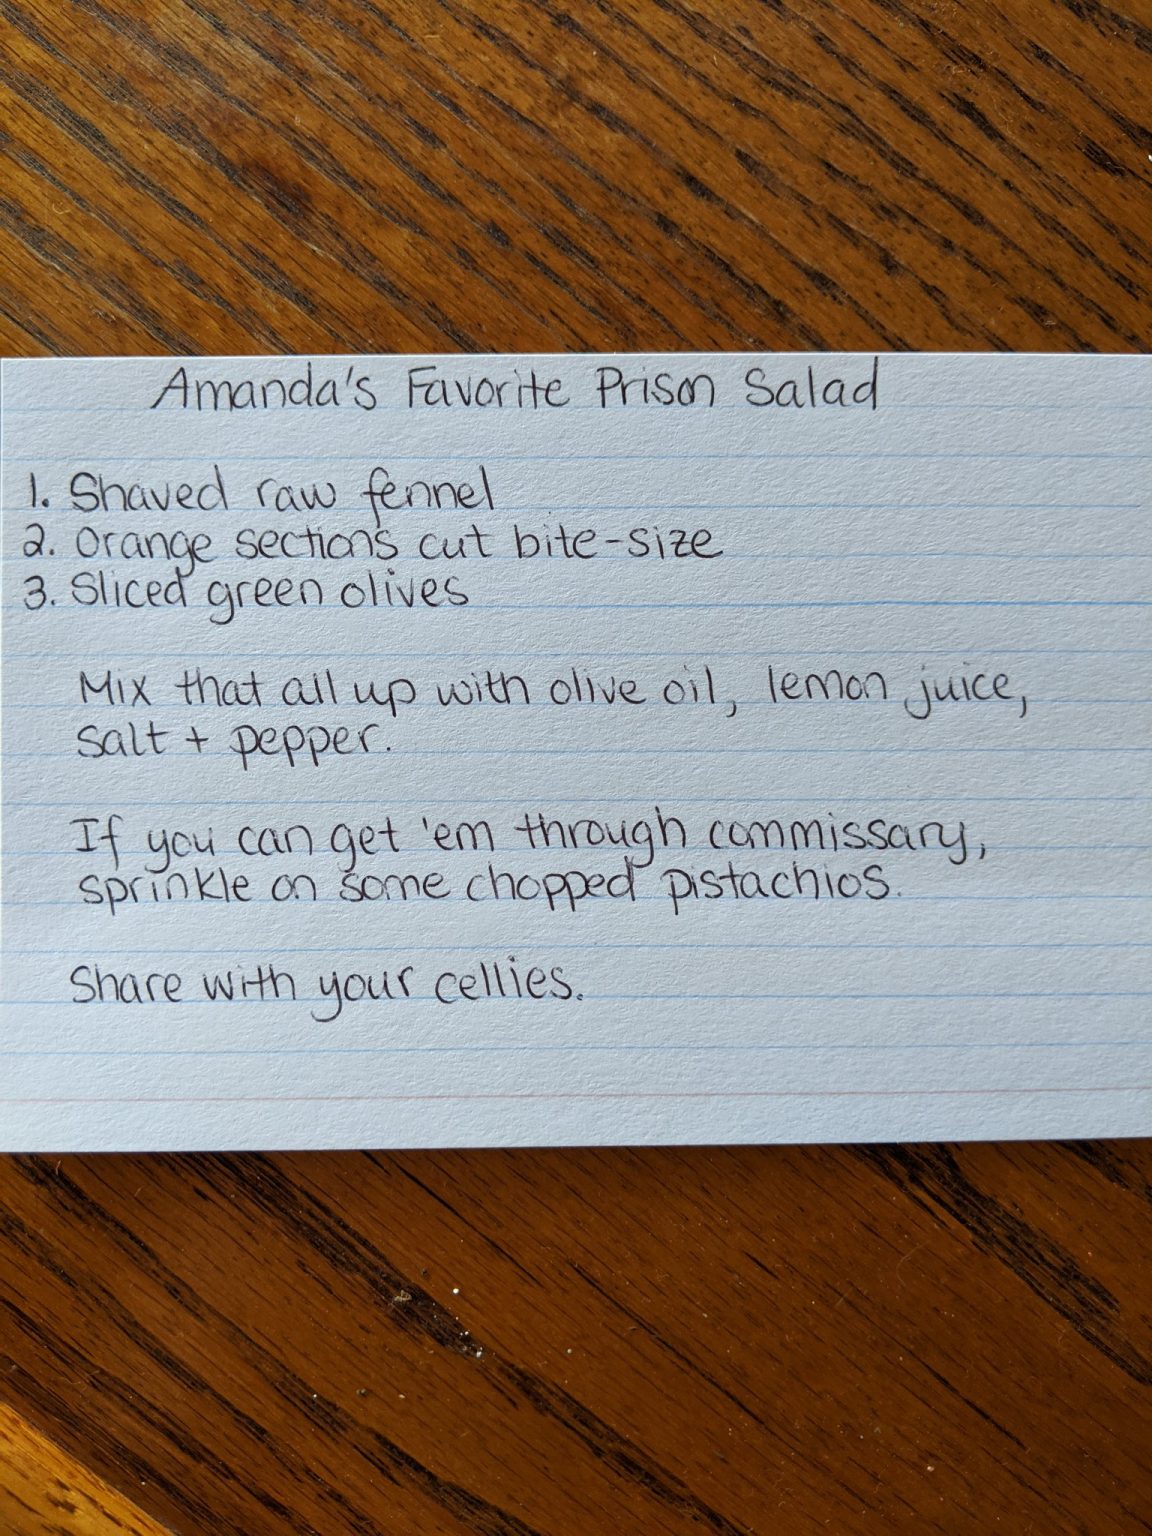 Amanda's Favorite Prison Salad
1. Shaved raw fennel
2. Orange sections cut bite-size
3. Sliced green olives
Mix that all up with olive oil, lemon juice,
salt + pepper.
If you can get 'em through commissary,
sprinkle on some chopped pistachios.
Share with your cellies.